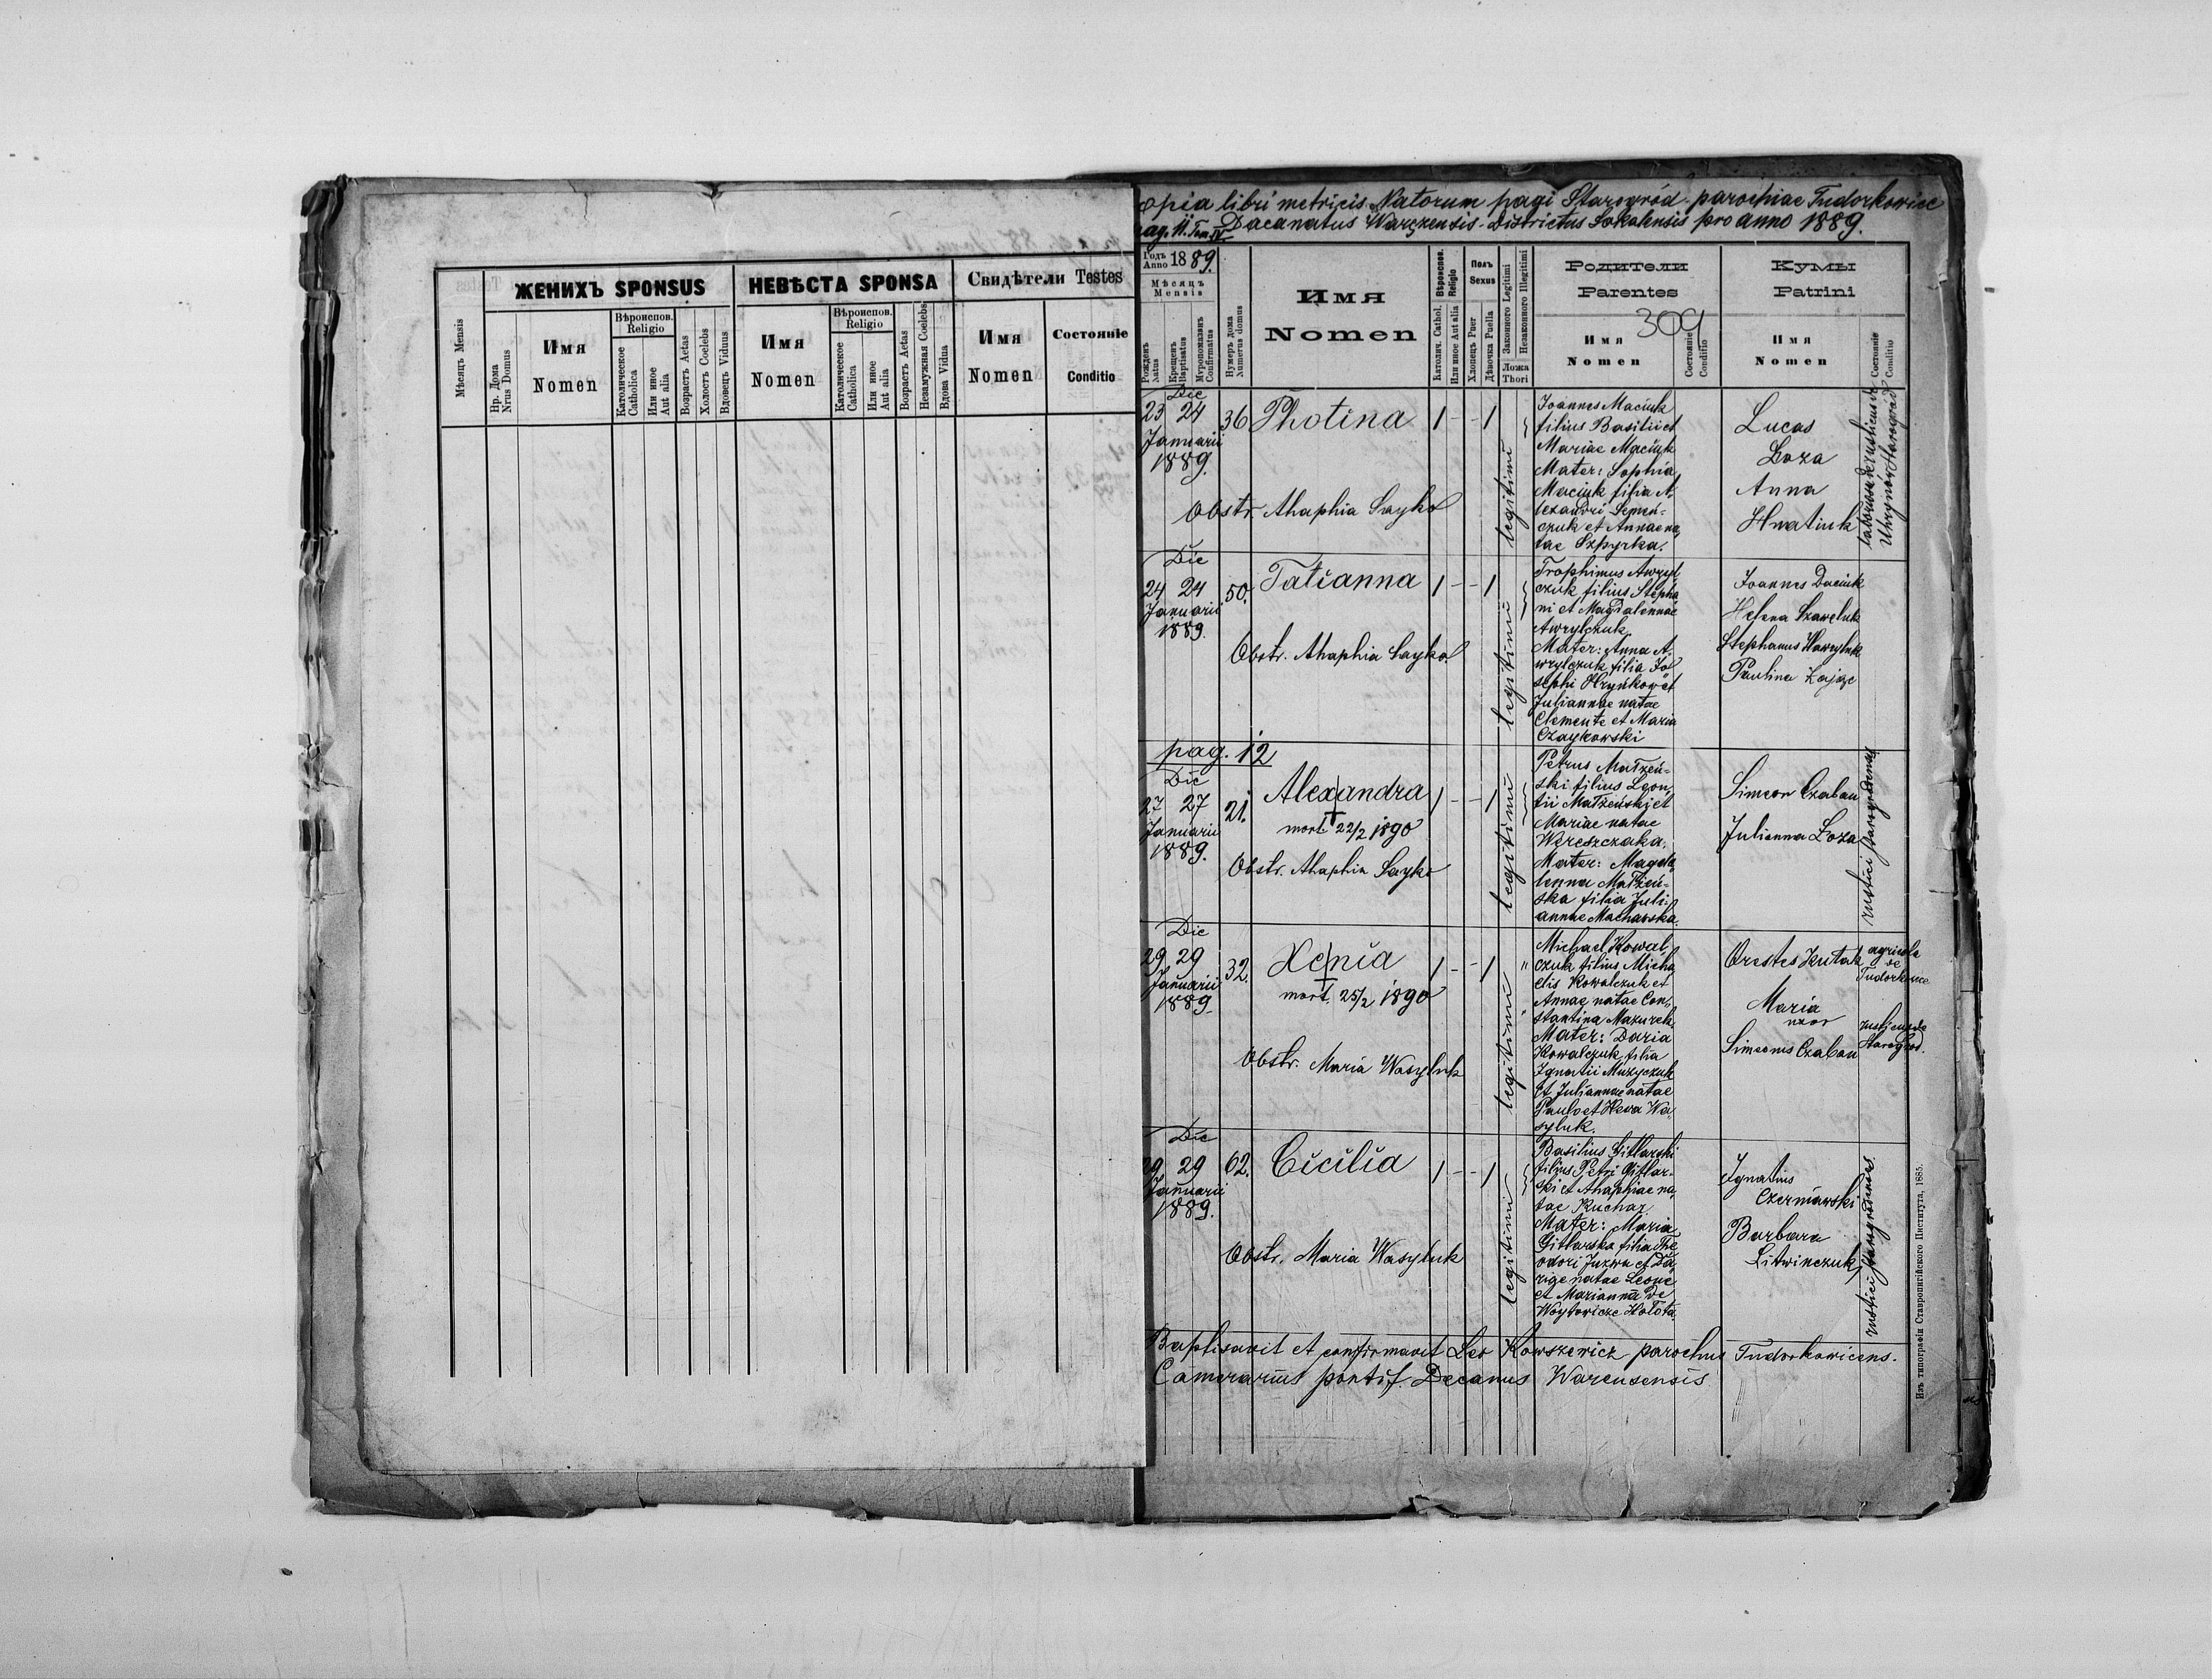 ЖЕНИХЪ SPONSUS
НЕВѢСТА SPONSA
Свидѣтели Testes
Мѣсяцъ Mensis
Нр. Дома
Nrus Domus
Имя
Nomen
Вѣроиспов.
Religio
Католическое
Catholica
Или иное
Aut alia
Возрастъ Aetas
Холостъ Coelebs
Вдовецъ Viduus
Имя
Nomen
Вѣроиспов.
Religio
Католическое
Catholica
Или иное
Aut alia
Возрастъ Aetas
Незамужная Coelebs
Вдова Vidua
Имя
Nomen
Состояніе
Conditio
opia libri metricis Natorum pagi Starogród parochiae Tudorkowice
ag. 11. Tom IV Dacanatus Waręzensis Districtus Sokalensis pro anno 1889.
Годъ
Anno 1889.
Мѣсяцъ
Mensis
Рожденъ
Natus
Крещенъ
Baptisatus
Муропомазанъ
Confirmatus
Нумеръ дома
Numerus domus
Имя
Nomen
Вѣроиспов.
Religio
Католич. Cathol.
Или иное Aut alia
Полъ
Sexus
Хлопецъ Puer
Дѣвочка Puella
Законного Legitimi
Незаконного Illegitimi
Ложа
Thori
Родители
Parentes
309
Имя
Nomen
Состояніе
Conditio
Кумы
Patrini
Имя
Nomen
Состояніе
Conditio
Die
23 24
Januarii
1889.
36
Photina
1 - - 1
legitimi
Obstr. Ahaphia Sayko
Joannes Maciuk
filius Basilii et
Mariae Maciuk
Mater: Sophia
Maciuk filia A,
lexandri Semen=
czuk et Annae na,
tae Szpyrka.
Lucas
Łoza
Anna
Hnatiuk
Die
24 24
Januarii
1889.
50.
Tatianna
1 - - 1
legitimi
Obstr. Ahaphia Sayko
Trophimus Awryl
czuk filius Stepha
ni et Magdalennae
Awrylczuk
Mater: Anna A,
wrylczuk filia Jo
sephi Hryńkow et
Juliannae natae
Clemente et Maria
Czaykowski
Joannes Daciuk
Helena Szaweluk
Stephanus Wawryluk
Paulina Zając
pag. 12
Die
27 27
Januarii
1889.
21.
Alexandra
mort. 22/2 1890
1 - - 1
legitimi
Obstr. Ahaphia Sayko
Petrus Małzeń=
ski filius Leon,
tii Małzeński et
Mariae natae
Wereszczaka.
Mater: Magda
lenna Małzeń=
ska filia Juli
annae Macharska.
Simeon Czaban
Julianna Łoza
rustici starogrodenses
Die
29 29
Januarii
1889.
32.
Xenia
mort. 25/2 1890
1 - - 1
legitimi
Obstr. Maria Wasyluk
Michael Kowal
czuk filius Micha
elis Kowalczuk et
Annae natae Con,
stantina Mazurek.
Mater: Daria
Kowalczuk filia
Ignatii Muzyczuk
et Juliannae natae
Paulo et Heva Wa
syluk.
Orestes Kutak
agricola
de
Tudorkowce
Maria
uxor
Simeonis Czaban
rusticus de
Starogrod.
Die
29 29
Januarii
1889.
62.
Cicilia
1 - - 1
legitimi
Obstr. Maria Wasyluk
Basilius Gitlarski
filius Petri Gitlar-
ski et Ahaphiae na,
tae Kuchar.
Mater: Maria
Gitlarska filia The
odori Juzwa et Da,
riae natae Leone
et Marianna de
Woytowicze Hołota
Ignatius
Czerniawski
Barbara
Litwinczuk
rustici starogrodenses.
Baptisavit et confirmavit Leo Kowszewicz parochus Tudorkowicens.
Camerarius pontif. Decanus Warensensis
Изъ типографіи Ставропигійского Института, 1885.